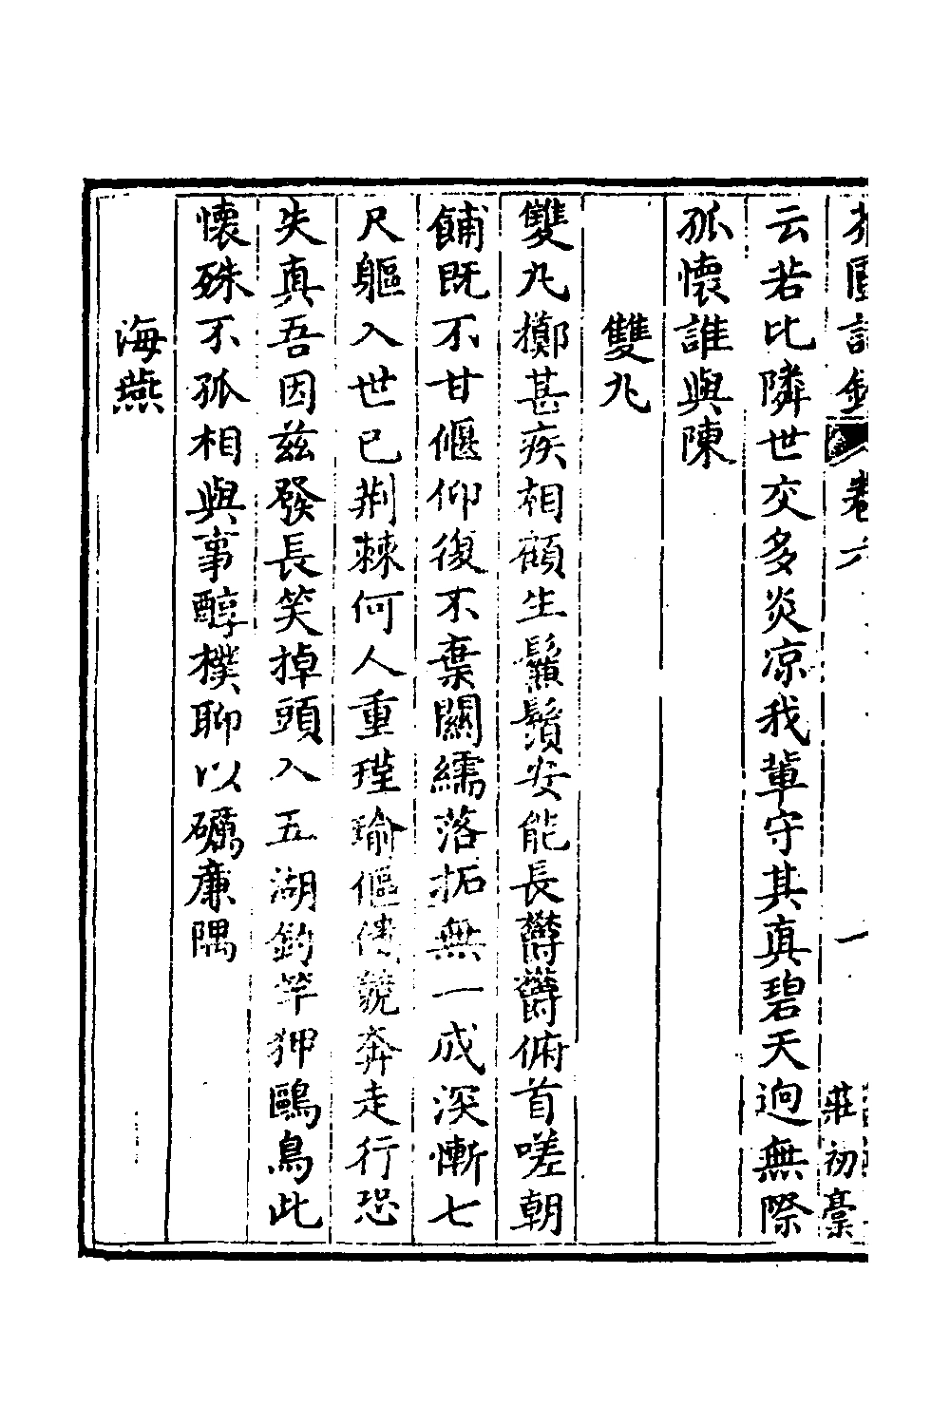 園詩鈔卷六 一 莊初稾
云若比隣世交多炎凉我輩守其真碧天逈無際
孤懷誰與陳
雙丸
雙丸擲甚疾相顧生鬚安能長欝欝俯首嗟朝
餔既不甘偃仰復不棄關繻落拓無一成深慚七
尺軀入世已荆棘何人重瑾瑜傴僂競奔走行恐
失真吾因兹發長笑掉頭入五湖釣竿狎鷗鳥此
懷殊不孤相與事醇樸聊以礪廉隅
海燕